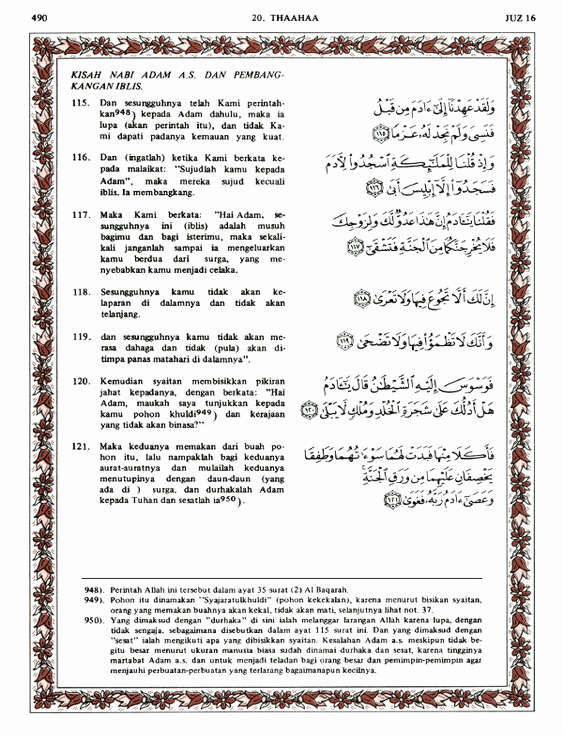 490
20. THAAHAA
JUZ 16
KISAH NABI ADAM A.S. DAN PEMBANG-
KANGAN IBLIS.
115. Dan sesungguhnya telah Kami perintah-
kan948) kepada Adam dahulu, maka ia
lupa (akan perintah itu), dan tidak Ka-
mi dapati padanya kemauan yang kuat.
وَلَقَدْ عَهِدْنَآ إِلَىٰٓ ءَادَمَ مِن قَبْلُ
فَنَسِىَ وَلَمْ نَجِدْ لَهُۥ عَزْمًا ﴿١١٥﴾
116. Dan (ingatlah) ketika Kami berkata ke-
pada malaikat: "Sujudlah kamu kepada
Adam", maka mereka sujud kecuali
iblis. Ia membangkang.
وَإِذْ قُلْنَا لِلْمَلَٰٓئِكَةِ ٱسْجُدُوا۟ لِءَادَمَ
فَسَجَدُوٓا۟ إِلَّآ إِبْلِيسَ أَبَىٰ ﴿١١٦﴾
117. Maka Kami berkata: "Hai Adam, se-
sungguhnya ini (iblis) adalah musuh
bagimu dan bagi isterimu, maka sekali-
kali janganlah sampai ia mengeluarkan
kamu berdua dari surga, yang me-
nyebabkan kamu menjadi celaka.
فَقُلْنَا يَٰٓـَٔادَمُ إِنَّ هَٰذَا عَدُوٌّ لَّكَ وَلِزَوْجِكَ
فَلَا يُخْرِجَنَّكُمَا مِنَ ٱلْجَنَّةِ فَتَشْقَىٰٓ ﴿١١٧﴾
118. Sesungguhnya kamu tidak akan ke-
laparan di dalamnya dan tidak akan
telanjang.
إِنَّ لَكَ أَلَّا تَجُوعَ فِيهَا وَلَا تَعْرَىٰ ﴿١١٨﴾
119. dan sesungguhnya kamu tidak akan me-
rasa dahaga dan tidak (pula) akan di-
timpa panas matahari di dalamnya".
وَأَنَّكَ لَا تَظْمَؤُا۟ فِيهَا وَلَا تَضْحَىٰ ﴿١١٩﴾
120. Kemudian syaitan membisikkan pikiran
jahat kepadanya, dengan berkata: "Hai
Adam, maukah saya tunjukkan kepada
kamu pohon khuldi949) dan kerajaan
yang tidak akan binasa?"
فَوَسْوَسَ إِلَيْهِ ٱلشَّيْطَٰنُ قَالَ يَٰٓـَٔادَمُ
هَلْ أَدُلُّكَ عَلَىٰ شَجَرَةِ ٱلْخُلْدِ وَمُلْكٍ لَّا يَبْلَىٰ ﴿١٢٠﴾
121. Maka keduanya memakan dari buah po-
hon itu, lalu nampaklah bagi keduanya
aurat-auratnya dan mulailah keduanya
menutupinya dengan daun-daun (yang
ada di ) surga, dan durhakalah Adam
kepada Tuhan dan sesatlah ia950).
فَأَكَلَا مِنْهَا فَبَدَتْ لَهُمَا سَوْءَٰتُهُمَا وَطَفِقَا
يَخْصِفَانِ عَلَيْهِمَا مِن وَرَقِ ٱلْجَنَّةِ ۚ
وَعَصَىٰٓ ءَادَمُ رَبَّهُۥ فَغَوَىٰ ﴿١٢١﴾
948). Perintah Allah ini tersebut dalam ayat 35 surat (2) Al Baqarah.
949). Pohon itu dinamakan "Syajaratulkhuldi" (pohon kekekalan), karena menurut bisikan syaitan,
orang yang memakan buahnya akan kekal, tidak akan mati, selanjutnya lihat not. 37.
950). Yang dimaksud dengan "durhaka" di sini ialah melanggar larangan Allah karena lupa, dengan
tidak sengaja, sebagaimana disebutkan dalam ayat 115 surat ini. Dan yang dimaksud dengan
"sesat" ialah mengikuti apa yang dibisikkan syaitan. Kesalahan Adam a.s. meskipun tidak be-
gitu besar menurut ukuran manusia biasa sudah dinamai durhaka dan sesat, karena tingginya
martabat Adam a.s. dan untuk menjadi teladan bagi orang besar dan pemimpin-pemimpin agar
menjauhi perbuatan-perbuatan yang terlarang bagaimanapun kecilnya.